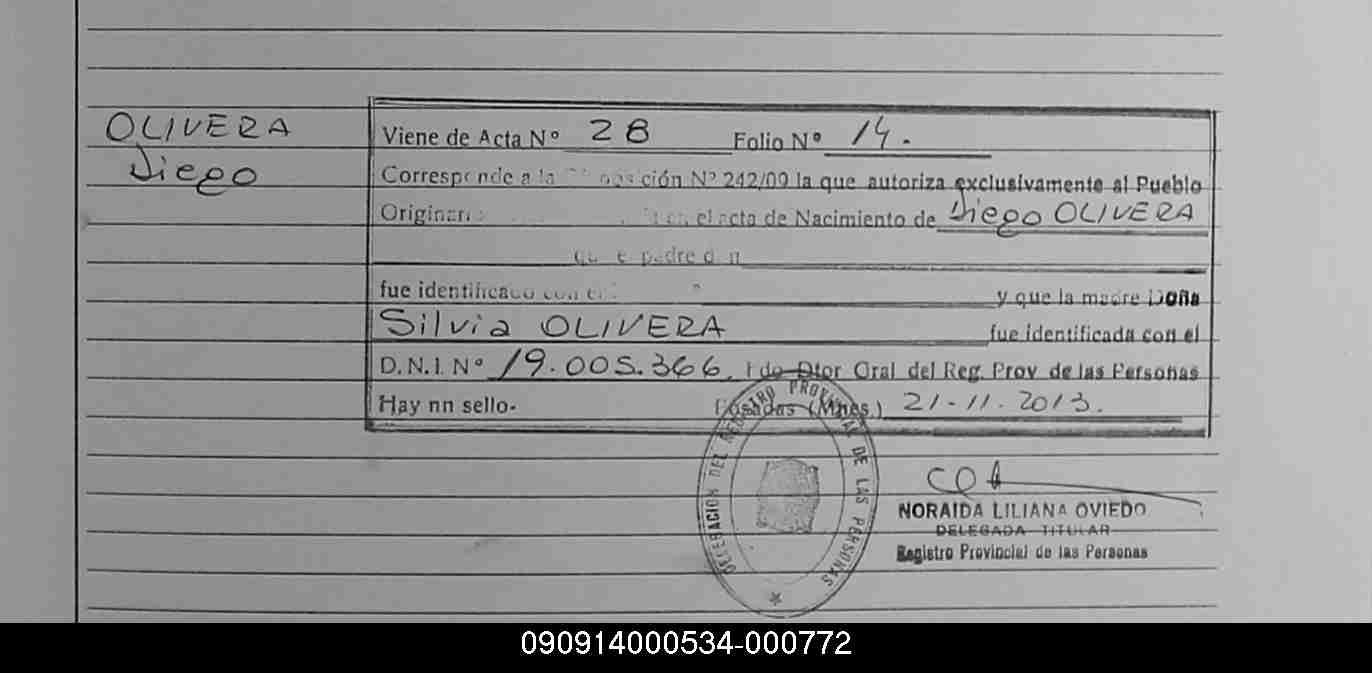 OLIVERA
Diego
Viene de Acta Nº 28 Folio Nº 14.
Corresponde a la ción Nº 242/09 la que autoriza exclusivamente al Pueblo
el acta de Nacimiento de Diego OLIVERA
padre
fue identificado con y que la madre Doña
Silvia OLIVERA fue identificada con el
D.N.I. Nº 19.005.366, Dtor Gral del Reg. Prov de las Personas
Hay nn sello- Posadas (Mnes.) 21-11-2013.
DELEGACION DEL REGISTRO PROVINCIAL DE LAS PERSONAS
NORAIDA LILIANA OVIEDO
DELEGADA TITULAR
Registro Provincial de las Personas
090914000534-000772